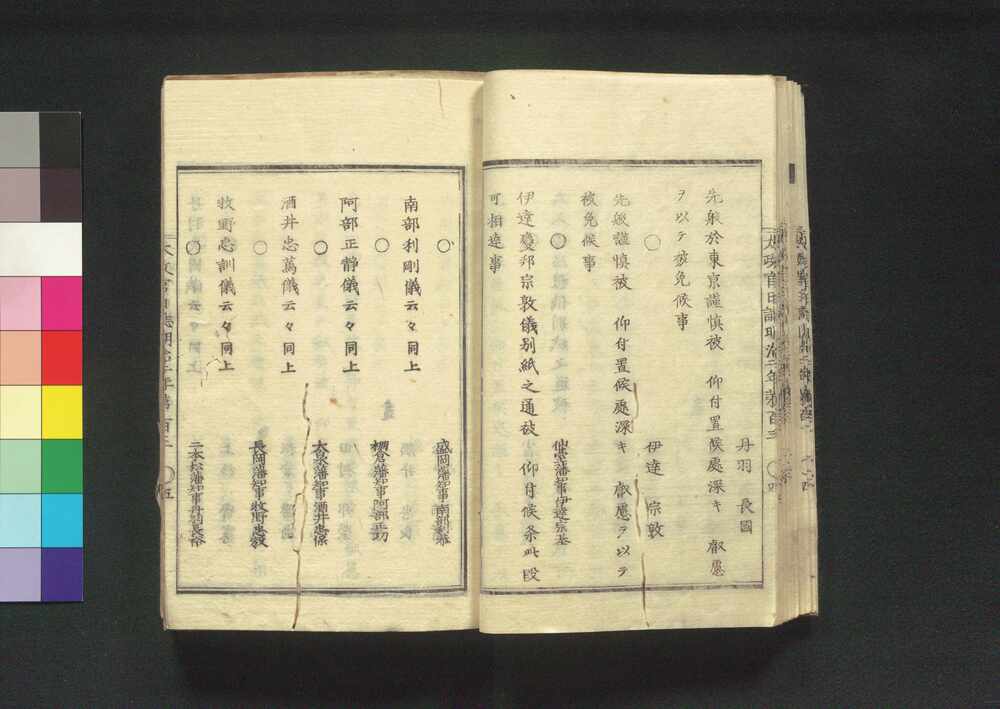 丹羽 長國
先般於東京謹慎被 仰付置候處深キ 叡慮
ヲ以テ被免候事
○
伊達 宗敦
先般謹慎被 仰付置候處深キ 叡慮ヲ以テ
被免候事
○
仙臺藩知事伊達宗基
伊達慶邦宗敦儀別紙之通被 仰付候条此段
可相達事
○
盛岡藩知事南部利恭
南部利剛儀云々同上
○
棚倉藩知事阿部正功
阿部正静儀云々同上
○
大泉藩知事酒井忠保
酒井忠篤儀云々同上
○
長岡藩知事牧野忠毅
牧野忠訓儀云々同上
○
二本松藩知事丹羽長裕
太政官日誌明治二年第百三 ○四
太政官日誌明治二年第百三 ○五